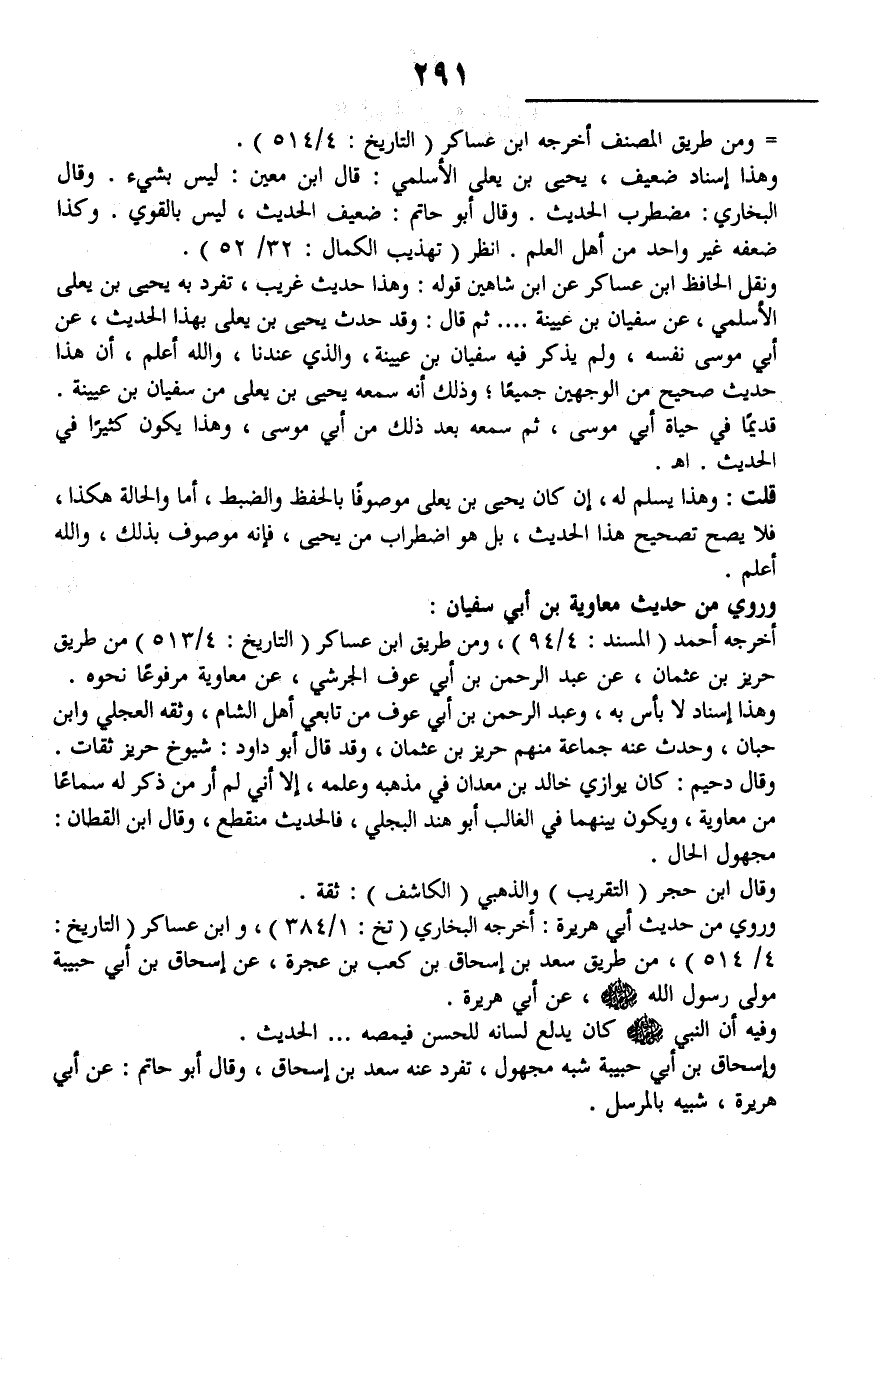 ٢٩١
= ومن طريق المصنف أخرجه ابن عساكر ( التاريخ : ٥١٤/٤ ) .
وهذا إسناد ضعيف ، يحيى بن يعلى الأسلمي : قال ابن معين : ليس بشيء . وقال
البخاري : مضطرب الحديث . وقال أبو حاتم : ضعيف الحديث ، ليس بالقوي . وكذا
ضعفه غير واحد من أهل العلم . انظر ( تهذيب الكمال : ٣٢/ ٥٢ ) .
ونقل الحافظ ابن عساكر عن ابن شاهين قوله : وهذا حديث غريب ، تفرد به يحيى بن يعلى
الأسلمي ، عن سفيان بن عيينة .... ثم قال : وقد حدث يحيى بن يعلى بهذا الحديث ، عن
أبي موسى نفسه ، ولم يذكر فيه سفيان بن عيينة ، والذي عندنا ، والله أعلم ، أن هذا
حديث صحيح من الوجهين جميعًا ؛ وذلك أنه سمعه يحيى بن يعلى من سفيان بن عيينة .
قديمًا في حياة أبي موسى ، ثم سمعه بعد ذلك من أبي موسى ، وهذا يكون كثيرًا في
الحديث . اهـ .
قلت : وهذا يسلم له ، إن كان يحيى بن يعلى موصوفًا بالحفظ والضبط ، أما والحالة هكذا ،
فلا يصح تصحيح هذا الحديث ، بل هو اضطراب من يحيى ، فإنه موصوف بذلك ، والله
أعلم .
وروي من حديث معاوية بن أبي سفيان :
أخرجه أحمد ( المسند : ٩٤/٤ ) ، ومن طريق ابن عساكر ( التاريخ : ٥١٣/٤ ) من طريق
حريز بن عثمان ، عن عبد الرحمن بن أبي عوف الجرشي ، عن معاوية مرفوعًا نحوه .
وهذا إسناد لا بأس به ، وعبد الرحمن بن أبي عوف من تابعي أهل الشام ، وثقه العجلي وابن
حبان ، وحدث عنه جماعة منهم حريز بن عثمان ، وقد قال أبو داود : شيوخ حريز ثقات .
وقال دحيم : كان يوازي خالد بن معدان في مذهبه وعلمه ، إلا أني لم أر من ذكر له سماعًا
من معاوية ، ويكون بينهما في الغالب أبو هند البجلي ، فالحديث منقطع ، وقال ابن القطان :
مجهول الحال .
وقال ابن حجر ( التقريب ) والذهبي ( الكاشف ) : ثقة .
وروي من حديث أبي هريرة : أخرجه البخاري ( تخ : ٣٨٤/١ ) ، و ابن عساكر ( التاريخ :
٤/ ٥١٤ ) ، من طريق سعد بن إسحاق بن كعب بن عجرة ، عن إسحاق بن أبي حبيبة
مولى رسول الله ﷺ ، عن أبي هريرة .
وفيه أن النبي ﷺ كان يدلع لسانه للحسن فيمصه ... الحديث .
وإسحاق بن أبي حبيبة شبه مجهول ، تفرد عنه سعد بن إسحاق ، وقال أبو حاتم : عن أبي
هريرة ، شبيه بالمرسل .